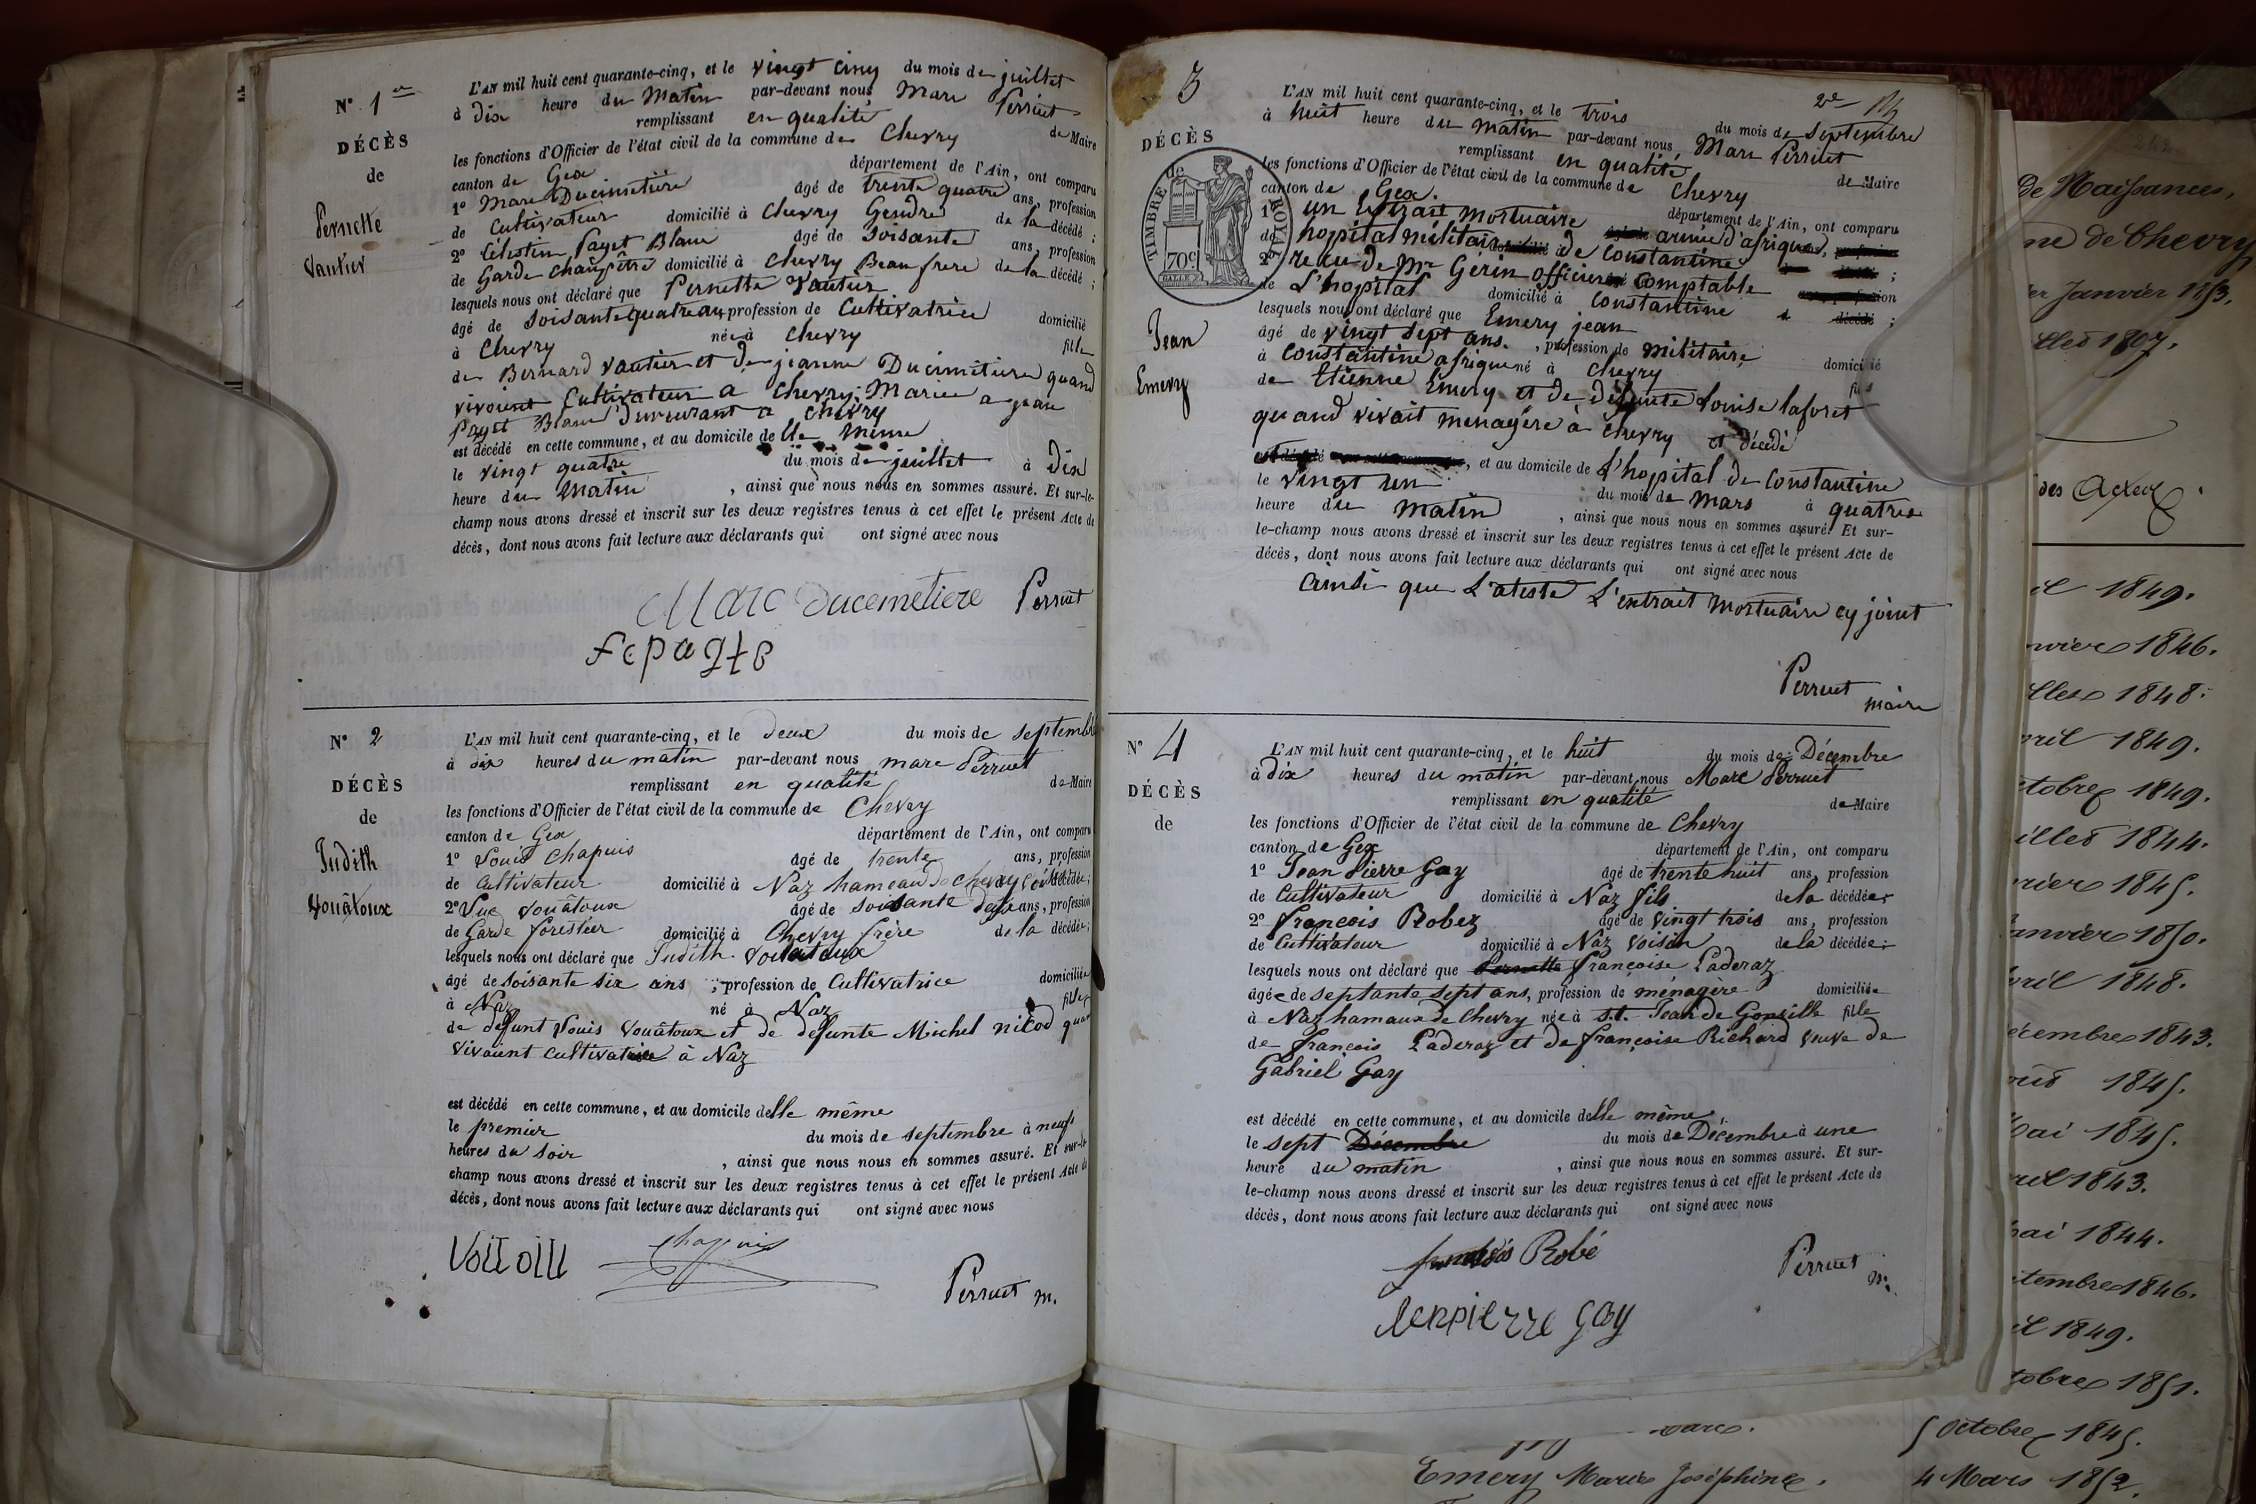 N° 1er
DÉCÈS
de
Pernette
Vautier
L'AN mil huit cent quarante-cinq, et le vingt cinq du mois de juillet
à dix heure du Matin par-devant nous Marc Perruet
remplissant en qualité de Maire
les fonctions d'Officier de l'état civil de la commune de Chevry
canton de Gex département de l'Ain, ont comparu
1° Marc Ducimetière âgé de trente quatre ans, profession
de Cultivateur domicilié à Chevry Gendre de la décédé ;
2° Célestin Paget Blanc âgé de soisante ans, profession
de Garde champêtre domicilié à Chevry Beau frere de la décédé ;
lesquels nous ont déclaré que Pernette Vautier
âgé de soisante quatre ans, profession de Cultivatrice domicilié
à Chevry née à Chevry fille
de Bernard Vautier et de jeanne Ducimetiere quand
vivoient Cultivateur a Chevry. Mariée a jean
Paget Blanc Demeurant a Chevry
est décédé en cette commune, et au domicile de lle même
le vingt quatre du mois de juillet à dix
heure du Matin , ainsi que nous nous en sommes assuré. Et sur-le-
champ nous avons dressé et inscrit sur les deux registres tenus à cet effet le présent Acte de
décès, dont nous avons fait lecture aux déclarants qui ont signé avec nous
Marc Ducemetiere Perruet
N° 2
DÉCÈS
de
Judith
Vouâtoux
L'AN mil huit cent quarante-cinq, et le deux du mois de septembre
à dix heures du matin par-devant nous marc Perruet
remplissant en qualité de Maire
les fonctions d'Officier de l'état civil de la commune de Chevry
canton de Gex département de l'Ain, ont comparu
1° Louis Chapuis âgé de trente ans, profession
de Cultivateur domicilié à Naz hameau de chevry décédée ;
2° Luc Vouâtoux âgé de soisante deux ans, profession
de Garde forestier domicilié à Chevry frère de la décédée ;
lesquels nous ont déclaré que Judith Vouatoux
âgé de soisante six ans ; profession de Cultivatrice domiciliée
à Naz né à Naz fille
de défunt Louis Vouâtoux et de défunte Michel nicod quan
vivaient cultivatrice à Naz
est décédé en cette commune, et au domicile delle même
le premier du mois de septembre à neufs
heures du soir , ainsi que nous nous en sommes assuré. Et sur-le-
champ nous avons dressé et inscrit sur les deux registres tenus à cet effet le présent Acte de
décès, dont nous avons fait lecture aux déclarants qui ont signé avec nous
Chappuis
Perruet m.
3
2e
DÉCÈS
de
TIMBRE ROYAL
70c
Jean
Emery
L'AN mil huit cent quarante-cinq, et le trois du mois de Septembre
à huit heure du matin par-devant nous Marc Perruet
remplissant en qualité de Maire
les fonctions d'Officier de l'état civil de la commune de Chevry
canton de Gex. département de l'Ain, ont comparu
1° un Extrait mortuaire armée d'afrique,
de hopital militair de Constantine ;
2° recu de Mr Gérin officier Comptable
de L'hopital domicilié à Constantine ;
lesquels nous ont déclaré que Emery jean
âgé de vingt sept ans. , profession de militaire, domicilié
à Constantine afrique né à Chevry fils
de Etienne Emery et de défunte Louise laforet
quand vivait menagère à Chevry et décédé
, et au domicile de L'hopital de Constantine
le vingt un du mois de Mars à quatres
heure du matin , ainsi que nous nous en sommes assuré. Et sur-
le-champ nous avons dressé et inscrit sur les deux registres tenus à cet effet le présent Acte de
décès, dont nous avons fait lecture aux déclarants qui ont signé avec nous
ainsi que L'ateste L'extrait Mortuaire cy joint
Perruet
maire
N° 4
DÉCÈS
de
L'AN mil huit cent quarante-cinq, et le huit du mois de Décembre
à Dix heures du matin par-devant nous Marc Perruet
remplissant en qualité de Maire
les fonctions d'Officier de l'état civil de la commune de Chevry
canton de Gex département de l'Ain, ont comparu
1° Jean Pierre Gay âgé de trente huit ans, profession
de Cultivateur domicilié à Naz fils de la décédée
2° François Robez âgé de vingt trois ans, profession
de Cultivateur domicilié à Naz voisin de la décédée ;
lesquels nous ont déclaré que Pernette françoise Paderaz
âgée de septante sept ans, profession de ménagère domiciliée
à Naz hamaux de Chevry née à st. Jean de Gonville fille
de françois Paderaz et de françoise Richard veuve de
Gabriel Gay
est décédé en cette commune, et au domicile delle même
le sept Décembre du mois de Décembre à une
heure du matin , ainsi que nous nous en sommes assuré. Et sur-
le-champ nous avons dressé et inscrit sur les deux registres tenus à cet effet le présent Acte de
décès, dont nous avons fait lecture aux déclarants qui ont signé avec nous
Robé
Perruet m.
jenpierre gay
de Naissances,
ne de Chevry
ier Janvier 1793,
illes 1807.
des Actes
il 1849.
nvier 1846.
illes 1848.
vril 1849.
ctobre 1849.
illes 1844.
vrier 1845.
anvier 1850.
vril 1848.
écembre 1843.
1845.
Mai 1845.
vril 1843.
mai 1844.
ptembre 1846.
il 1849.
tobre 1851.
5 octobre 1845.
Emery Marie Joséphine. 4 Mars 1852.